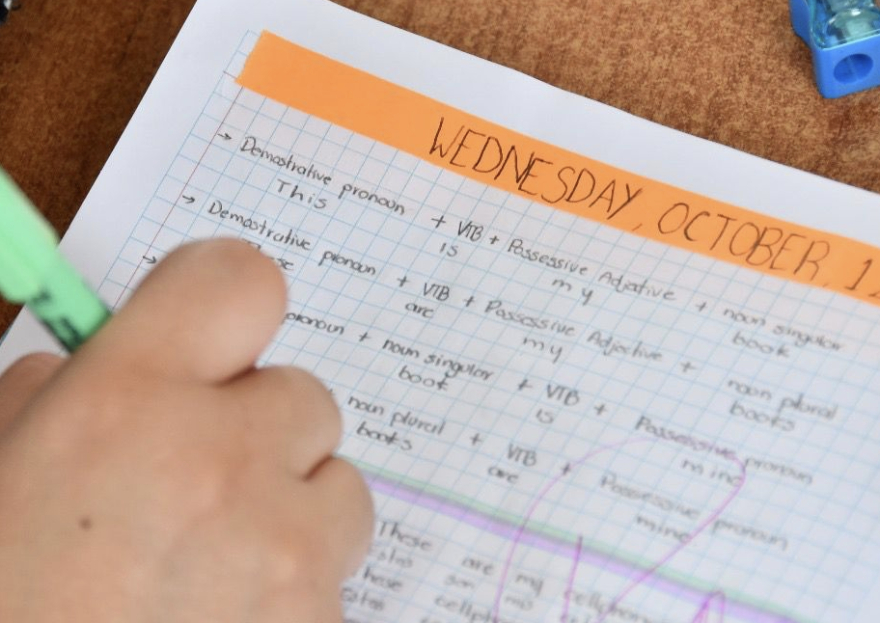 WEDNESDAY, OCTOBER, 1
→ Demostrative pronoun + VTB + Possessive Adjective + noun singular
This is my book
→ Demostrative pronoun + VTB + Possessive Adjective + noun plural
are my books
→ pronoun + noun singular + VTB + Possessive pronoun
book is mine
+ noun plural + VTB + Possessive pronoun
books are mine
These are my
son mis